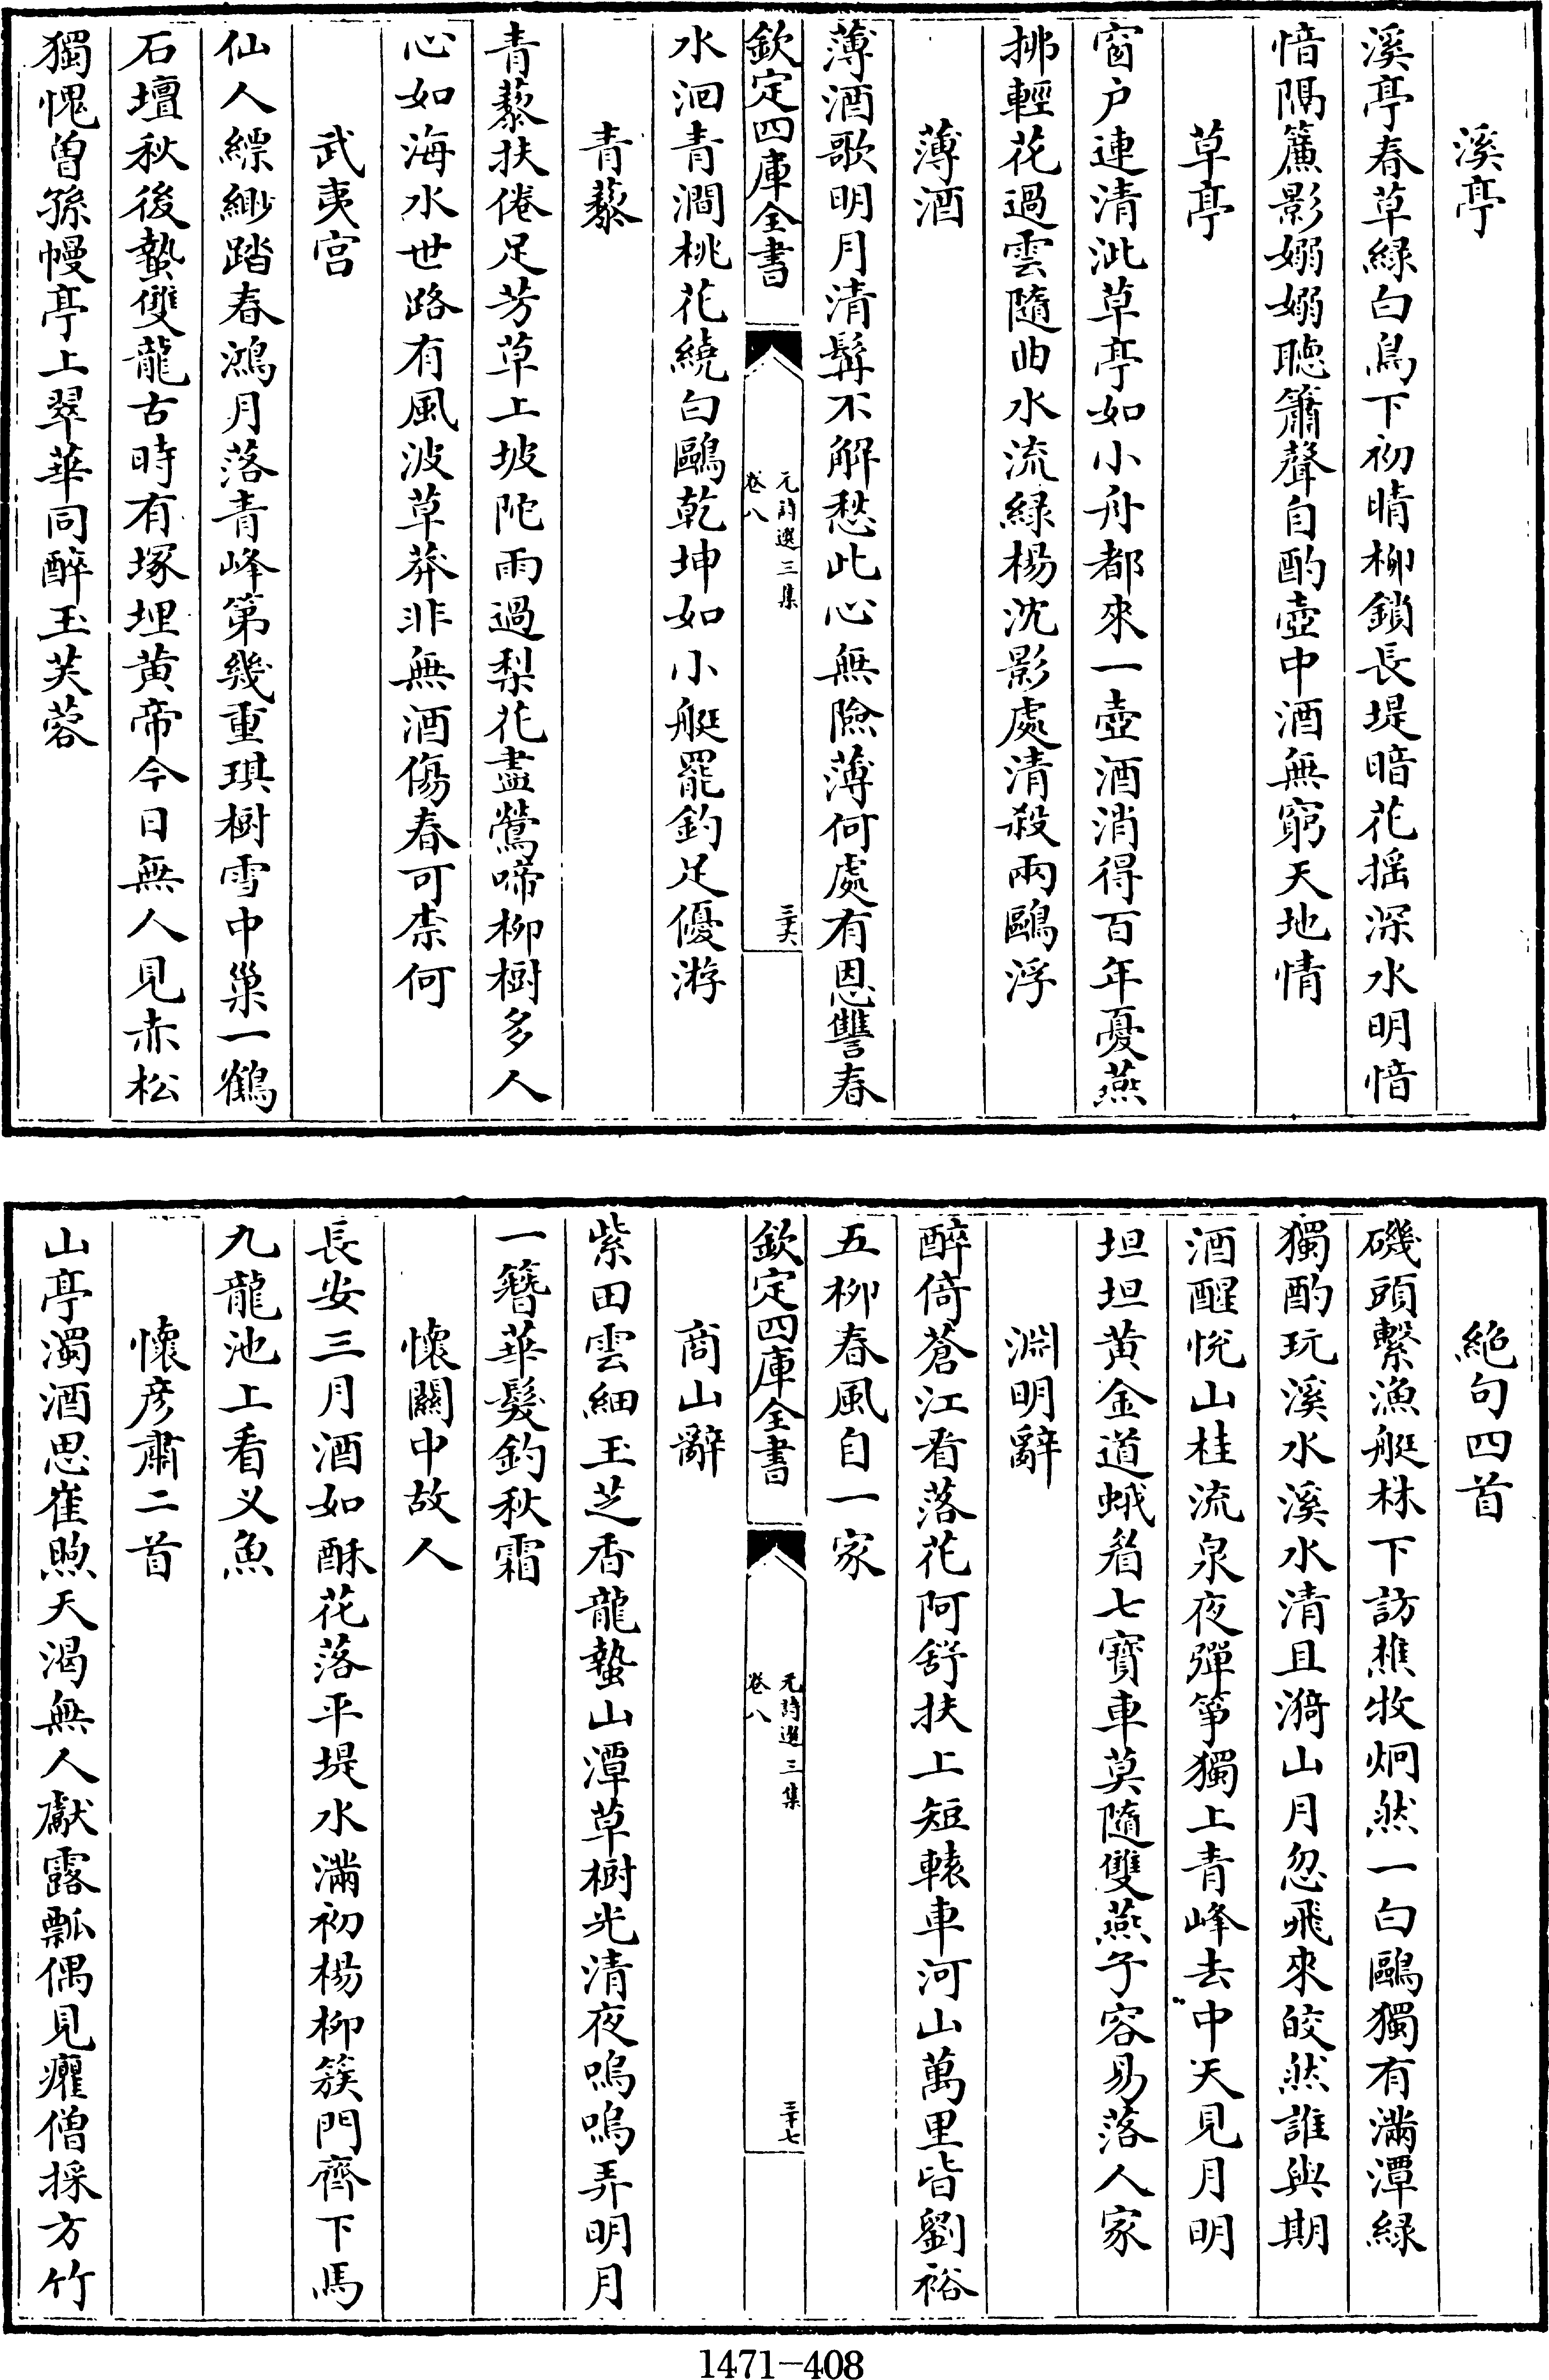 溪亭
溪亭春草緑白鳥下初晴柳鎖長堤暗花搖深水明愔
愔隔簾影嫋嫋聽簫聲自酌壺中酒無窮天地情
草亭
窗户連清泚草亭如小舟都來一壺酒消得百年憂燕
拂輕花過雲隨曲水流緑楊沈影處清殺兩鷗浮
薄酒
薄酒歌明月清髯不解愁此心無險薄何處有恩讐春
欽定四庫全書
元詩選三集
卷八
三十六
水洄青澗桃花繞白鷗乾坤如小艇罷釣足優游
青藜
青藜扶倦足芳草上坡陀雨過梨花盡鶯啼柳樹多人
心如海水世路有風波草莽非無酒傷春可柰何
武夷宫
仙人縹緲踏春鴻月落青峰第幾重琪樹雪中巢一鶴
石壇秋後蟄雙龍古時有塚埋黄帝今日無人見赤松
獨愧曽孫幔亭上翠華同醉玉芙蓉
絶句四首
磯頭繫漁艇林下訪樵牧炯然一白鷗獨有滿潭緑
獨酌玩溪水溪水清且漪山月忽飛來皎然誰與期
酒醒悦山桂流泉夜彈箏獨上青峰去中天見月明
坦坦黄金道蛾眉七寳車莫隨雙燕子容易落人家
淵明辭
醉倚蒼江看落花阿舒扶上短轅車河山萬里皆劉裕
五柳春風自一家
欽定四庫全書
元詩選三集
卷八
三十七
商山辭
紫田雲細玉芝香龍蟄山潭草樹光清夜嗚嗚弄明月
一簪華髮釣秋霜
懷關中故人
長安三月酒如酥花落平堤水滿初楊柳簇門齊下馬
九龍池上看乂魚
懷彦肅二首
山亭濁酒思崔煦天渴無人獻露瓢偶見癯僧採方竹
1471-408